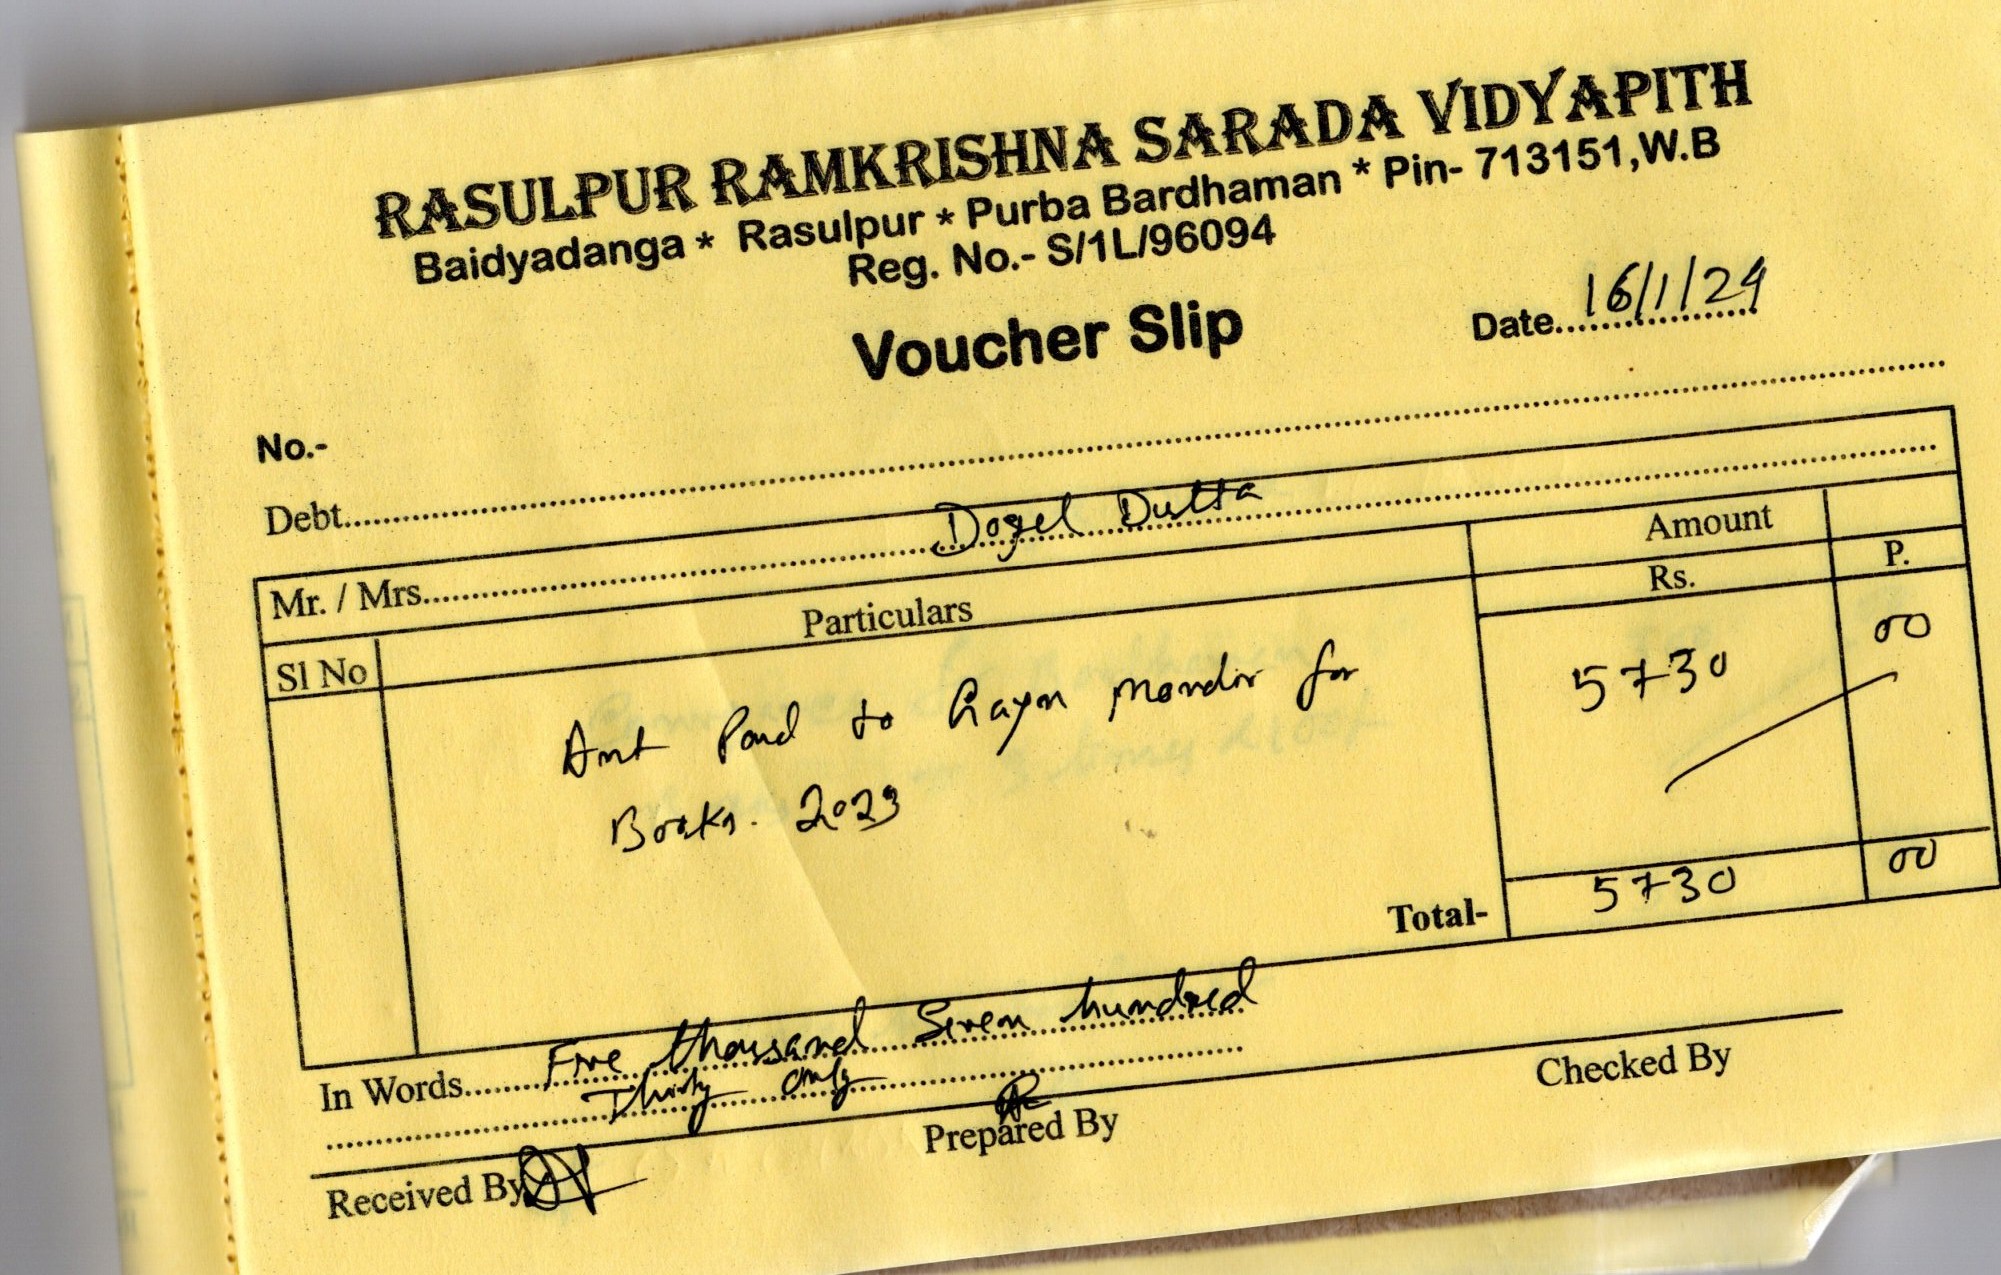 RASULPUR RAMKRISHNA SARADA VIDYAPITH
Baidyadanga * Rasulpur * Purba Bardhaman * Pin- 713151,W.B
Reg. No.- S/1L/96094
Voucher Slip
Date 16/1/24
No.-
Debt
Mr. / Mrs. Dogel Dutta
Sl No Particulars Amount
Rs. P.
Amt Paid to Gayan Mondir for 5730 00
Books. 2023
Total- 5730 00
In Words Five thousand Seven hundred
Thirty only
Received By Prepared By Checked By